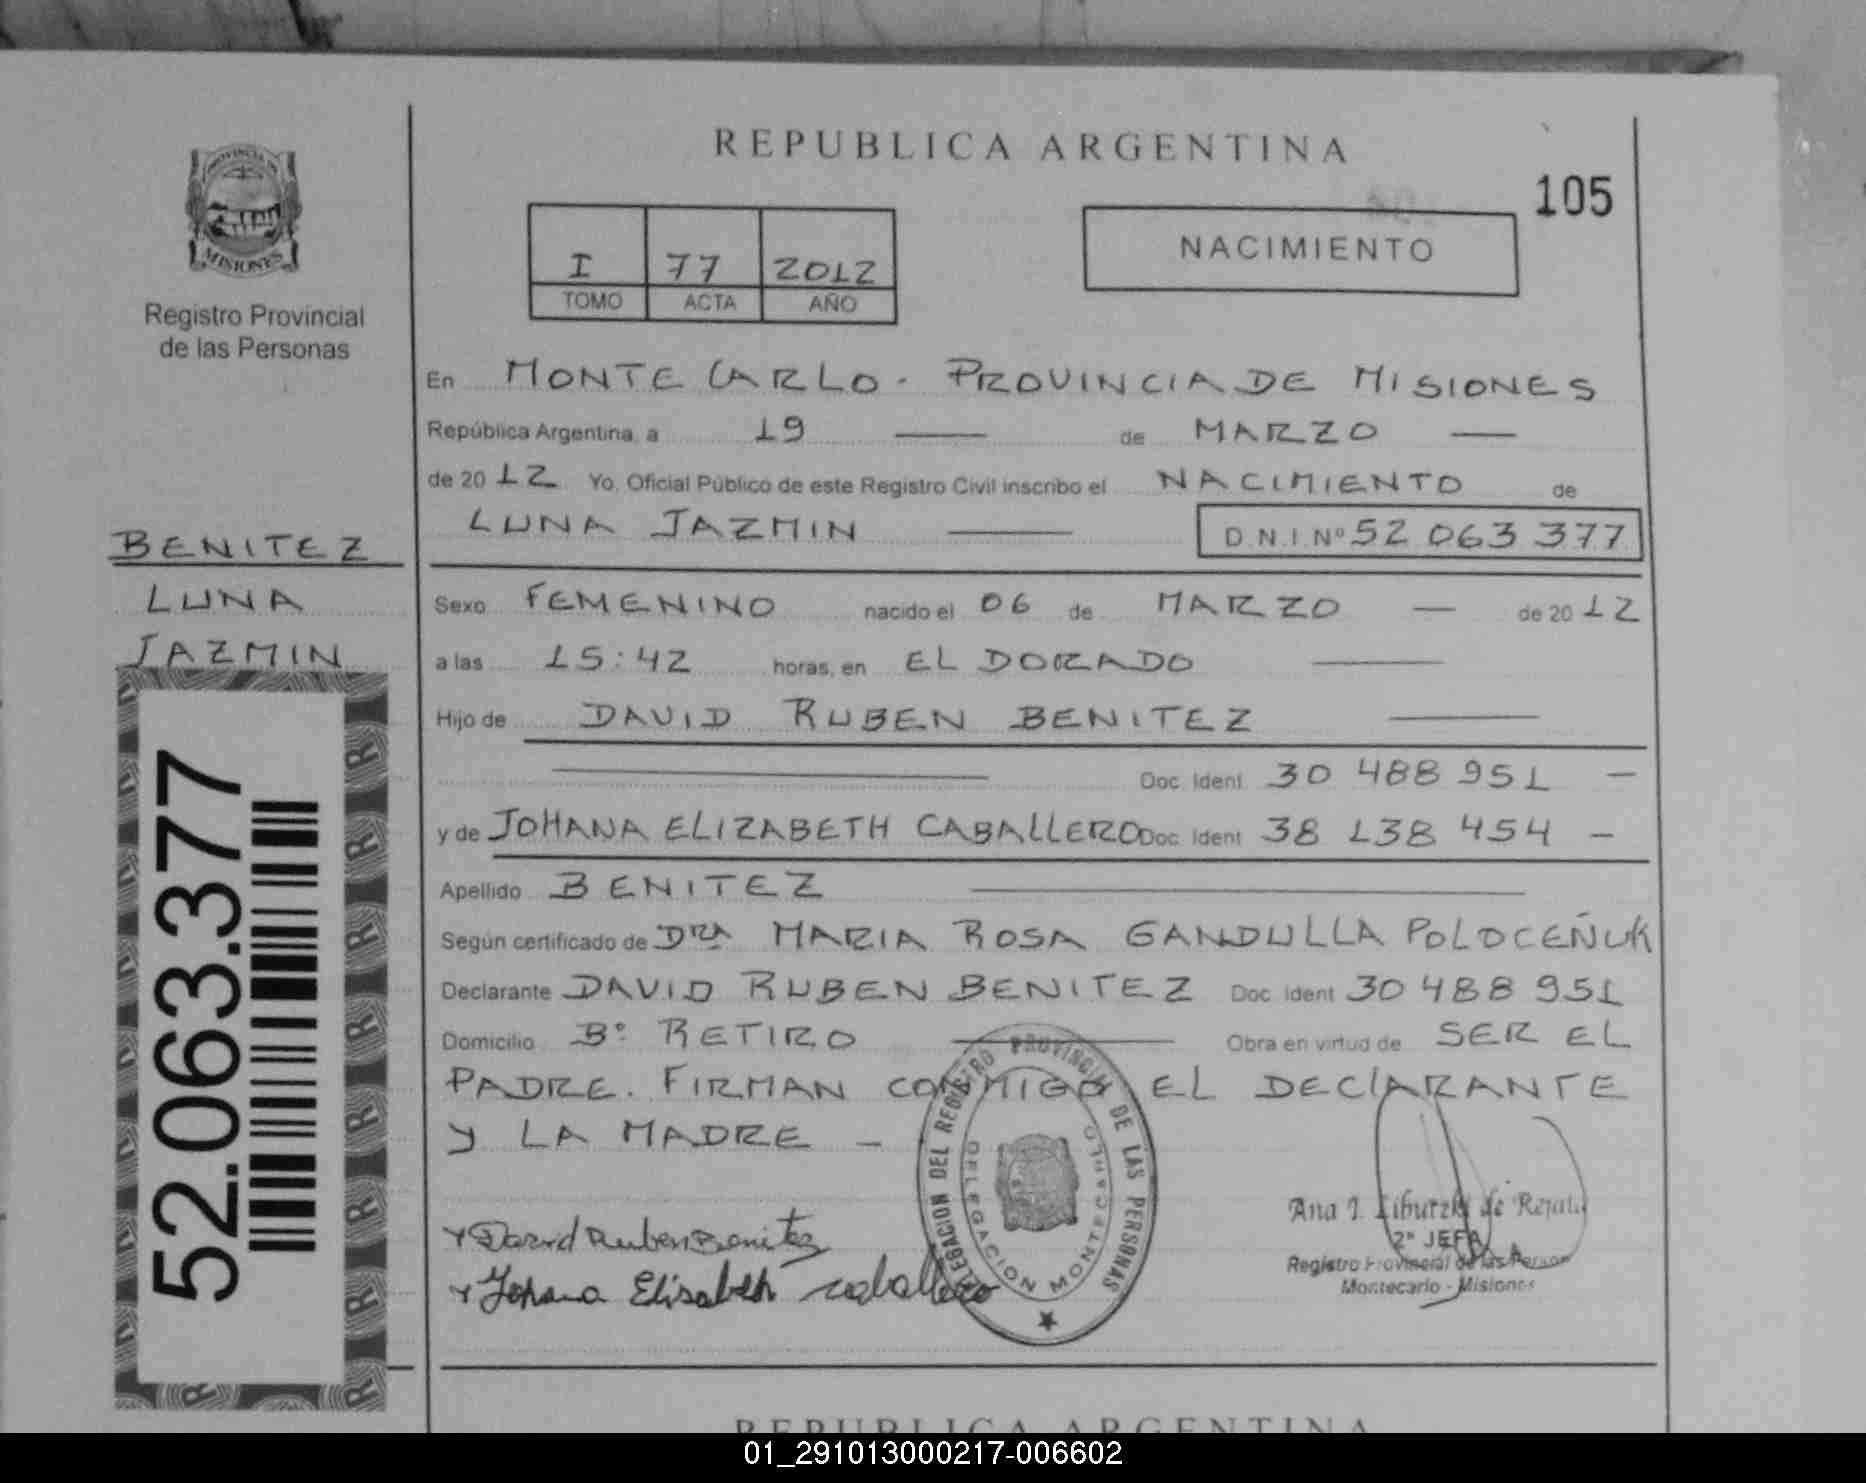 REPUBLICA ARGENTINA
105
PROVINCIA DE
MISIONES
Registro Provincial
de las Personas
I 77 2012
TOMO ACTA AÑO
NACIMIENTO
En MONTE CARLO - PROVINCIA DE MISIONES
República Argentina, a 19 — de MARZO —
de 2012 Yo, Oficial Público de este Registro Civil inscribo el NACIMIENTO de
LUNA JAZMIN — D.N.I. Nº 52 063 377
BENITEZ
LUNA
JAZMIN
52.063.377
Sexo FEMENINO nacido el 06 de MARZO — de 2012
a las 15:42 horas, en EL DORADO —
Hijo de DAVID RUBEN BENITEZ —
— Doc. Ident 30 488 951 —
y de JOHANA ELIZABETH CABALLERO Doc. Ident 38 138 454 —
Apellido BENITEZ —
Según certificado de DRA MARIA ROSA GANDULLA POLOCEÑUK
Declarante DAVID RUBEN BENITEZ Doc. Ident 30 488 951
Domicilio Bº RETIRO — Obra en virtud de SER EL
PADRE. FIRMAN CONMIGO EL DECLARANTE
Y LA MADRE —
DELEGACION DEL REGISTRO PROVINCIAL DE LAS PERSONAS
DELEGACION MONTECARLO
David Ruben Benitez
Johana Elisabeth caballero
Ana I. Liburzki de
2ª JEFA
Registro Provincial de las Person
Montecarlo - Misiones
REPUBLICA ARGENTINA
01_291013000217-006602